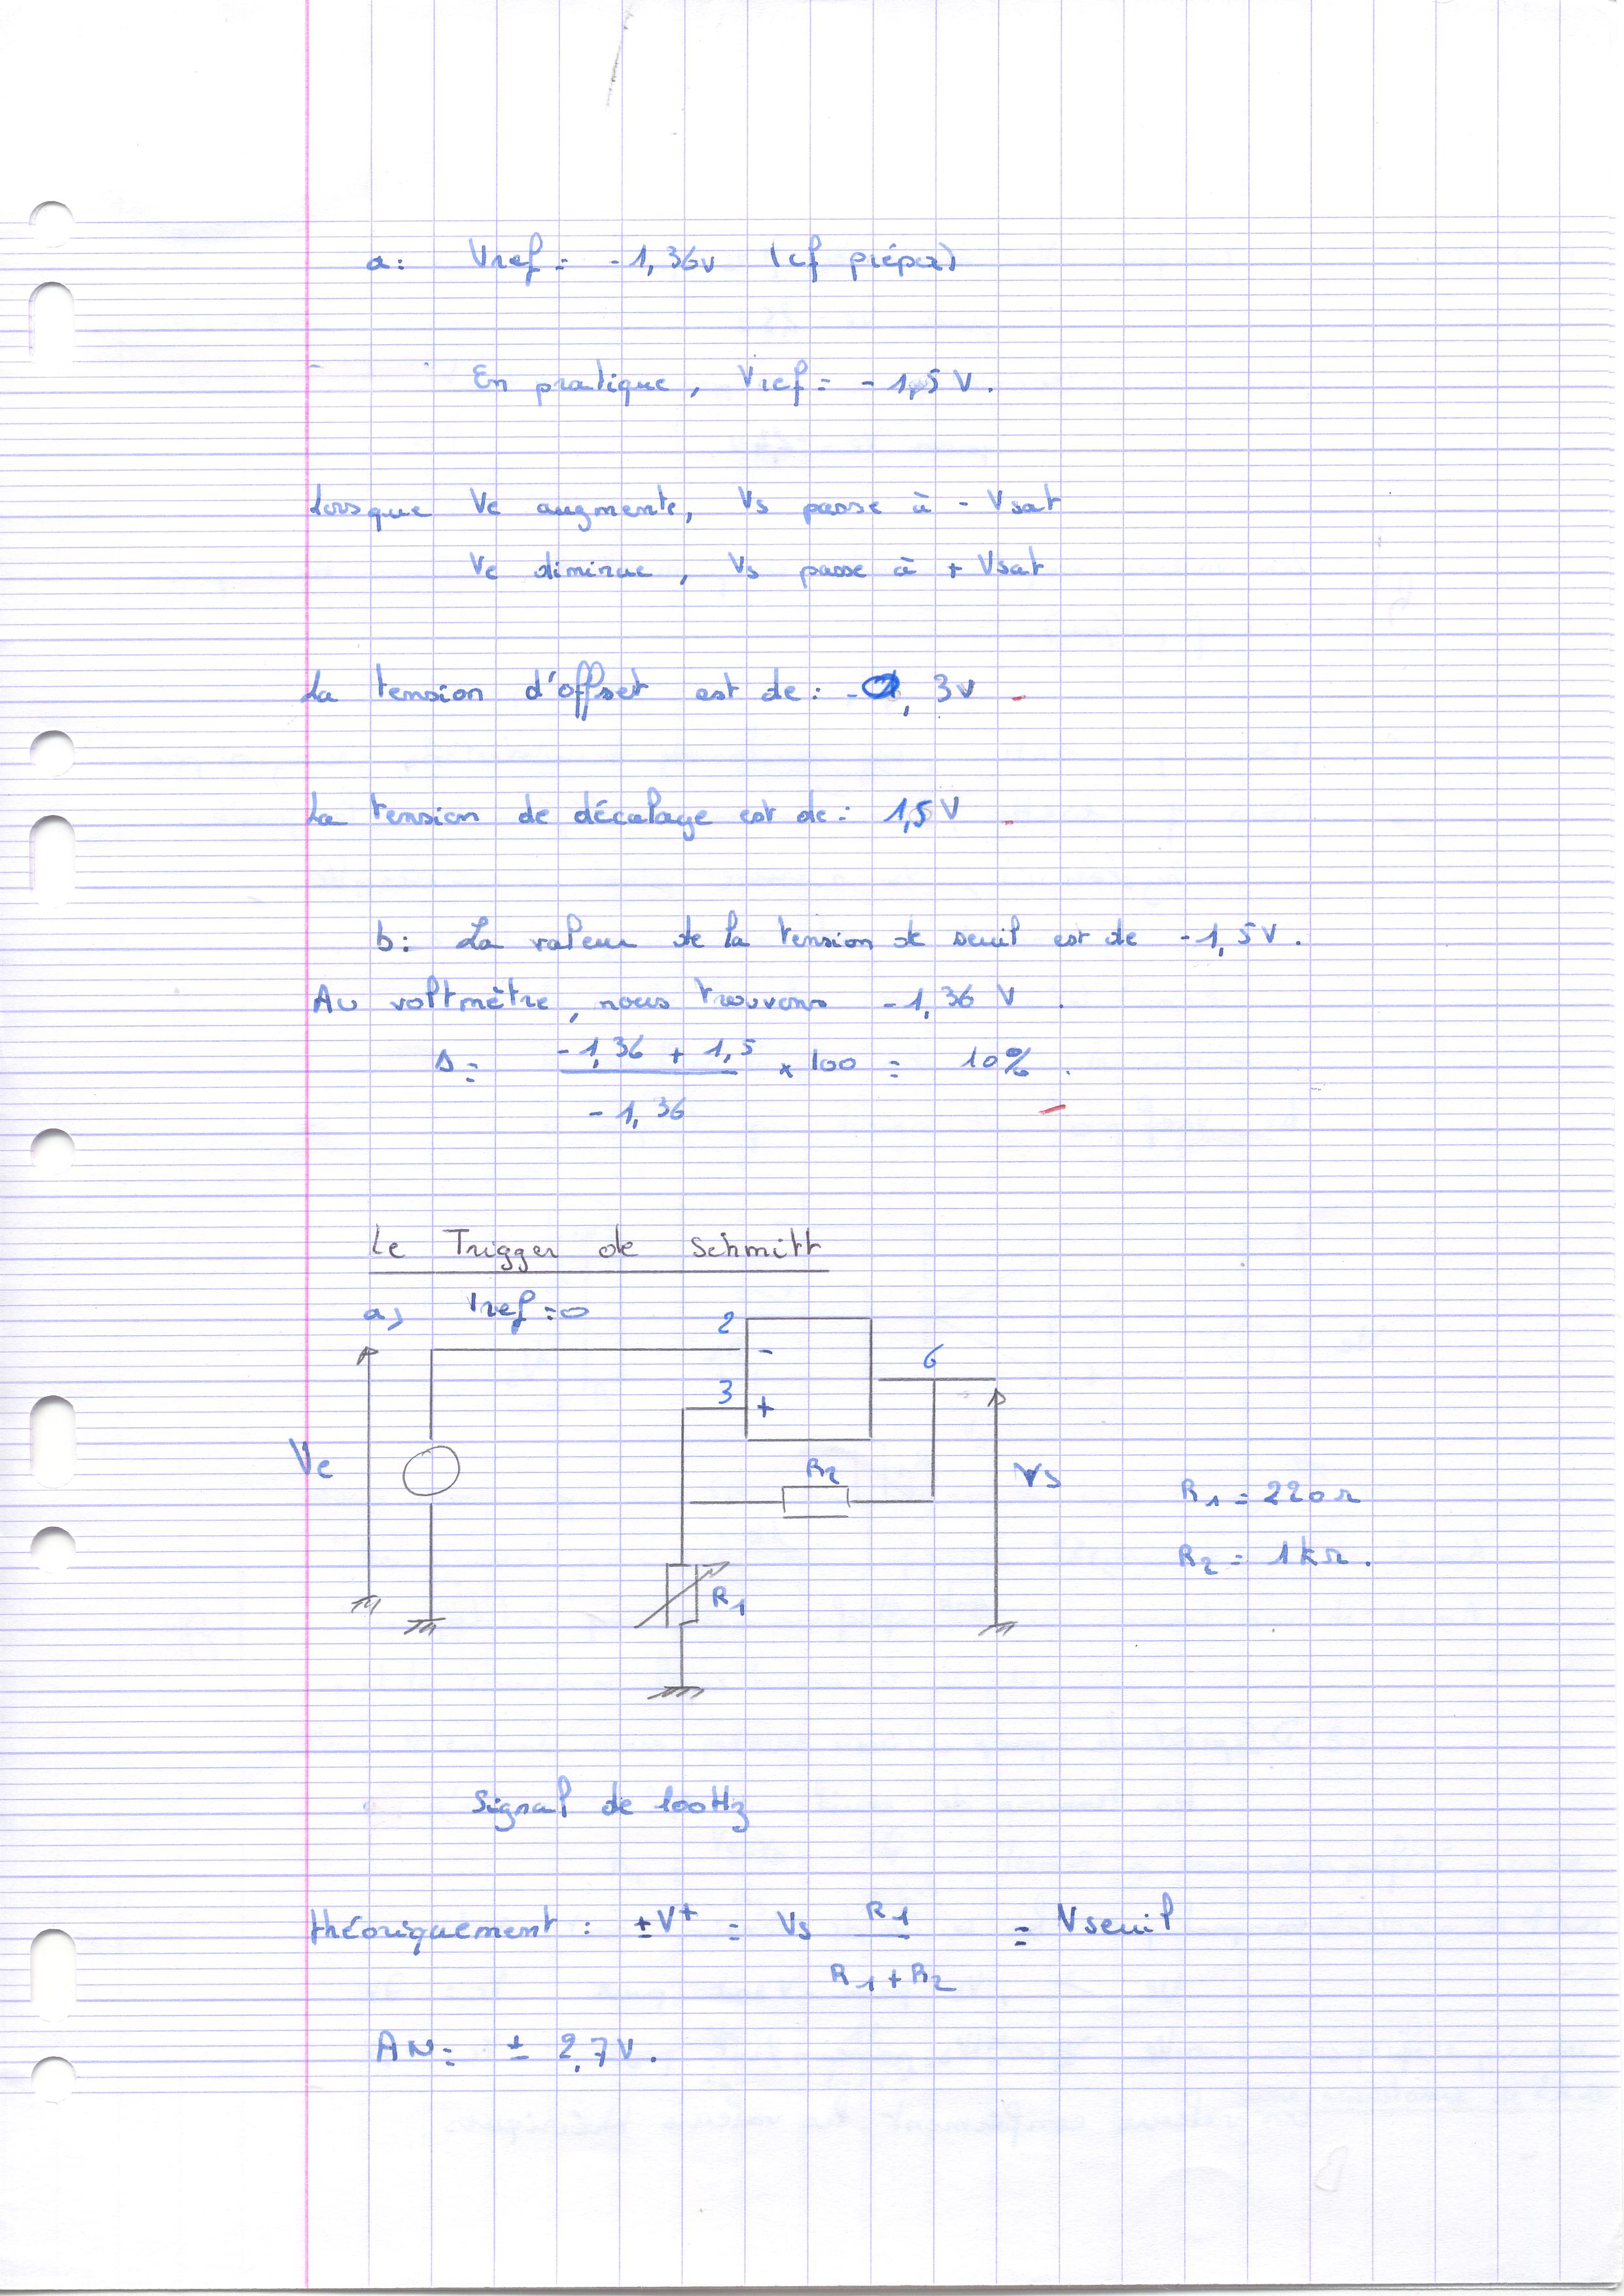 a: Vref = -1,36v (cf prépa)
En pratique, Vref = -1,5 V.
Lorsque Ve augmente, Vs passe à - Vsat
Ve diminue, Vs passe à + Vsat
La tension d'offset est de : - , 3v
La tension de décalage est de : 1,5 V
b: La valeur de la tension de seuil est de -1,5V.
Au voltmètre, nous trouvons -1,36 V.
Δ = -1,36 + 1,5 / -1,36 × 100 = 10%.
Le Trigger de Schmitt
a) Vref = 0
2
-
6
3
+
Ve
R2
Vs
R1 = 220Ω
R2 = 1kΩ.
R1
Signal de 100Hz
théoriquement : ±V+ = Vs R1 / R1 + R2 = Vseuil
AN = ± 2,7V.